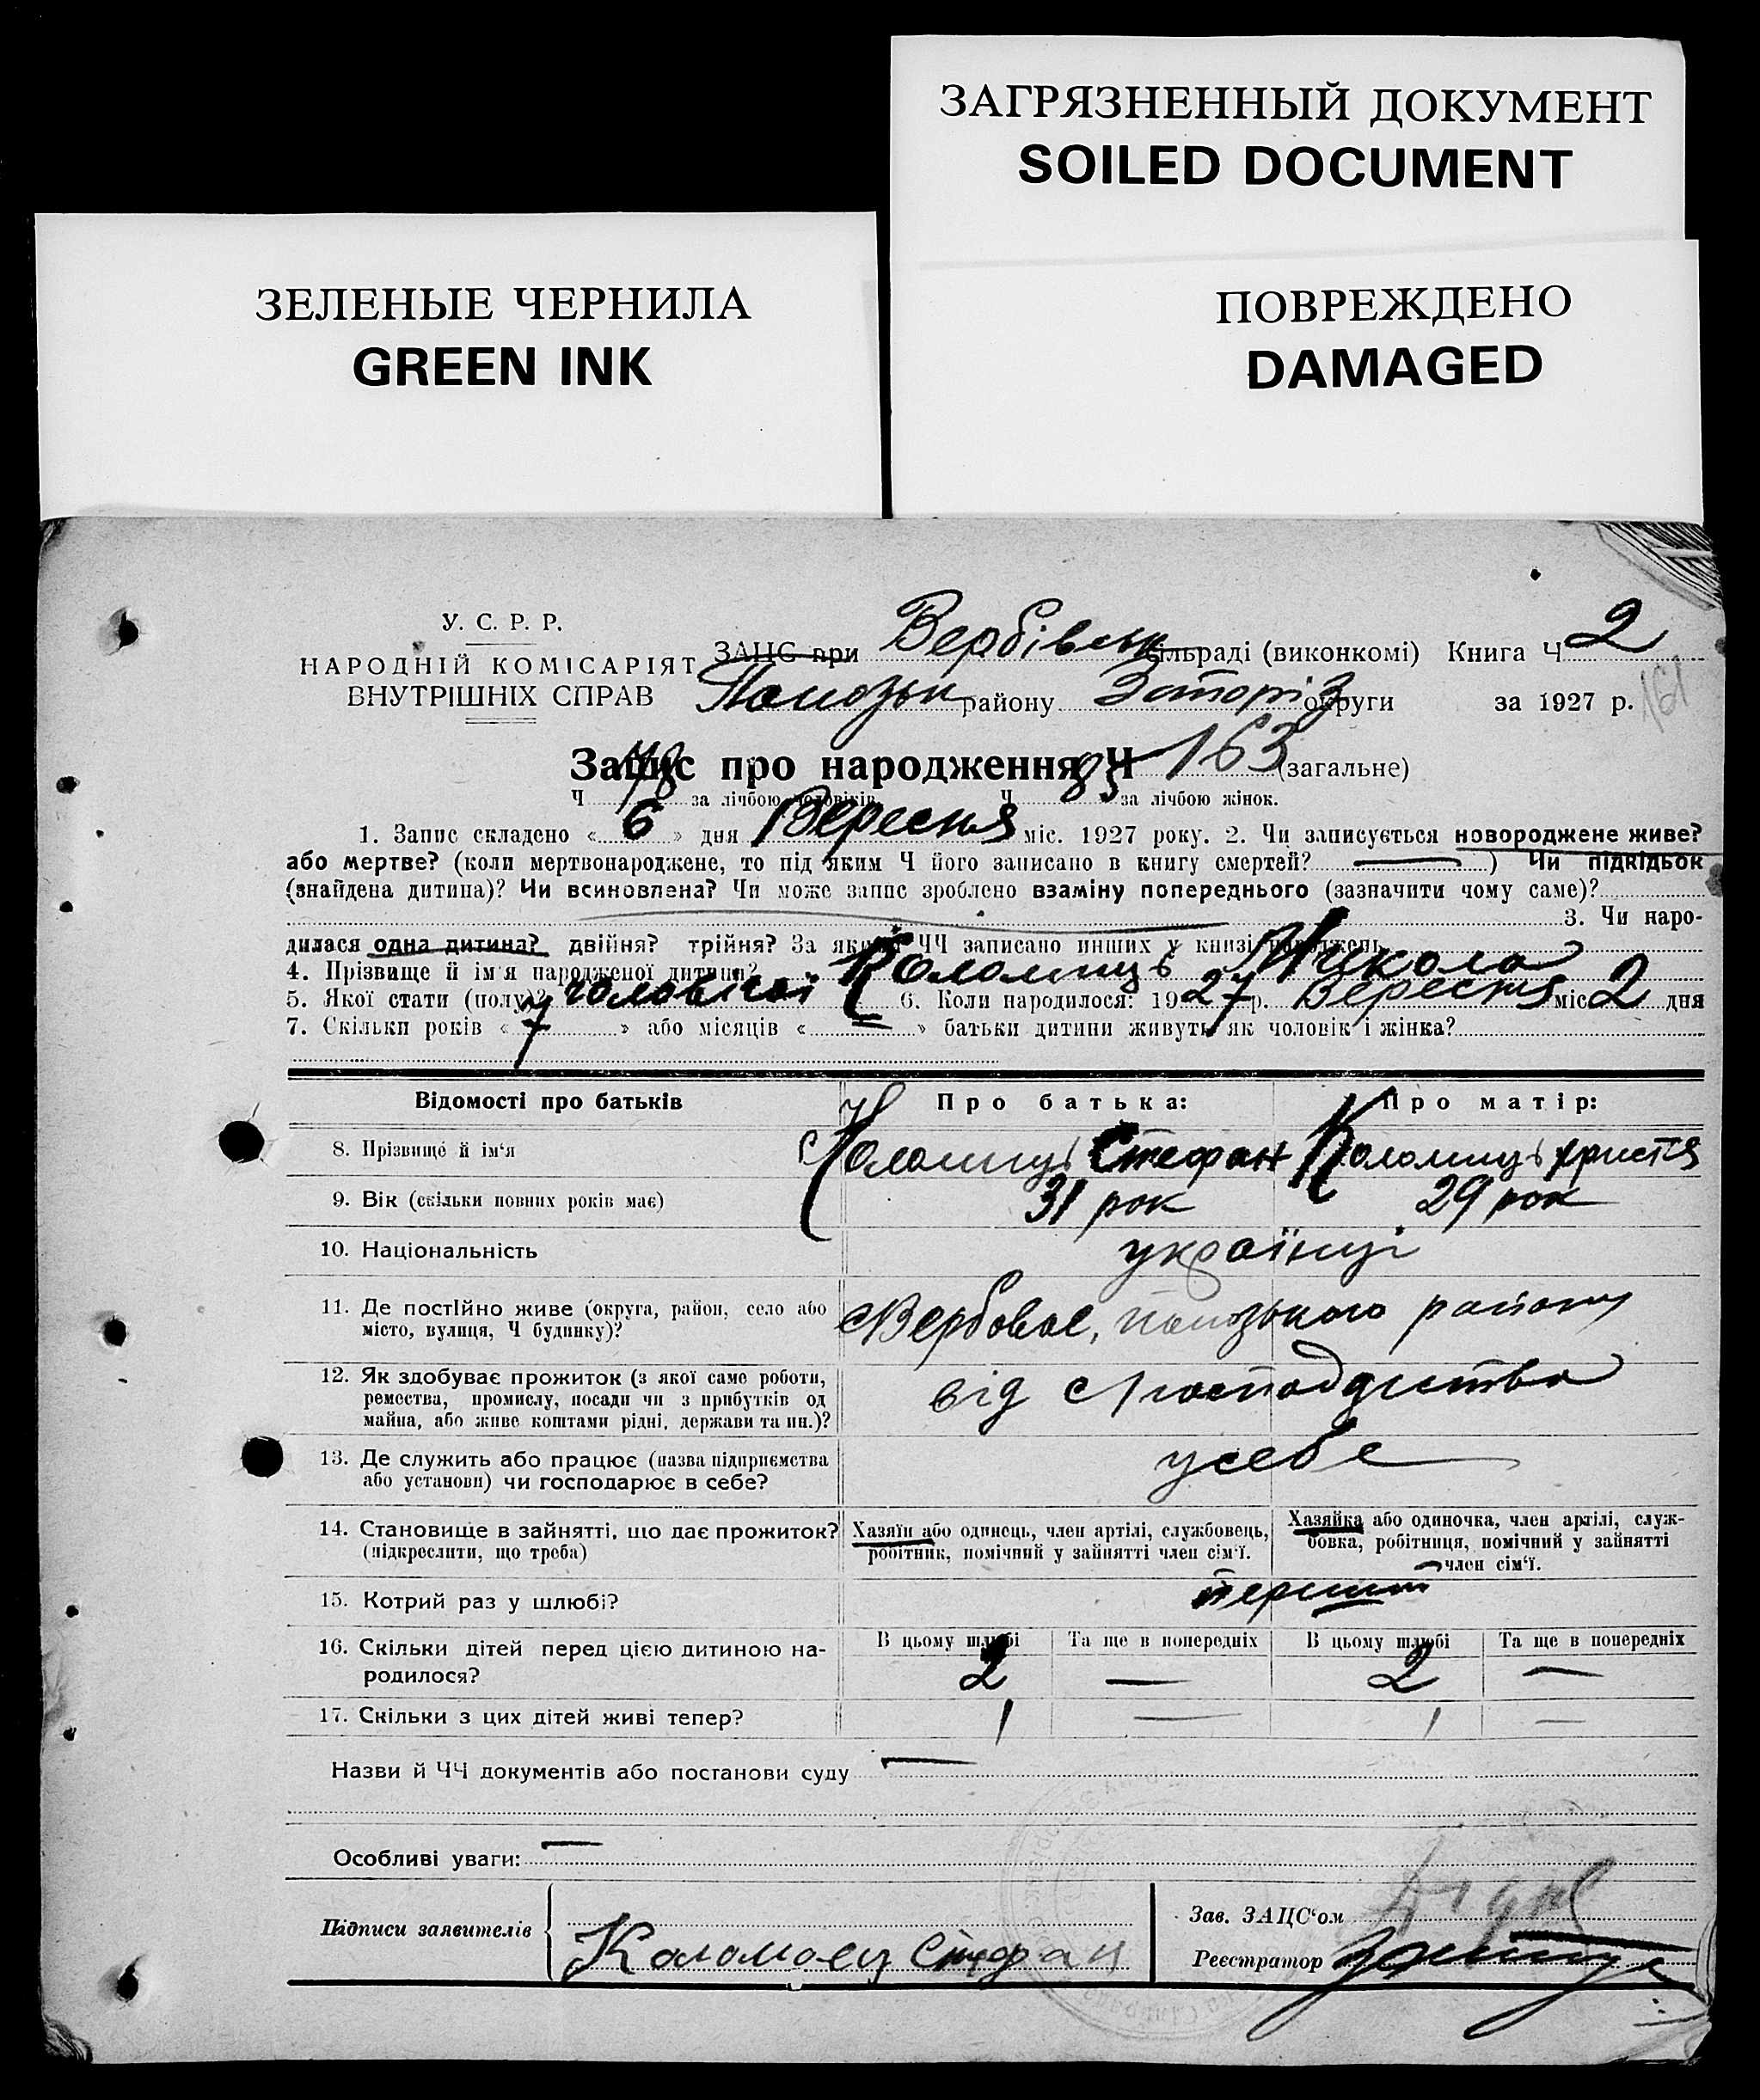 ЗАГРЯЗНЕННЫЙ ДОКУМЕНТ
SOILED DOCUMENT
ЗЕЛЕНЫЕ ЧЕРНИЛА
GREEN INK
ПОВРЕЖДЕНО
DAMAGED
У. С. Р. Р.
НАРОДНІЙ КОМІСАРІЯТ
ВНУТРІШНІХ СПРАВ
ЗАЦС при Вербівськ сільраді (виконкомі) Книга Ч 2
району Запоріз округи за 1927 р. 161
Запис про народження Ч 163 (загальне)
Ч 78 за лічбою чоловіків Ч 85 за лічбою жінок.
1. Запис складено « 6 » дня Вересня міс. 1927 року. 2. Чи записується новороджене живе?
або мертве? (коли мертвонароджене, то під яким Ч його записано в книгу смертей? — ) Чи підкідьок
(знайдена дитина)? Чи всиновлена? Чи може запис зроблено взаміну попереднього (зазначити чому саме)?
3. Чи наро-
дилася одна дитина? двійня? трійня? За якими ЧЧ записано инших у книзі народжень
4. Прізвище й ім'я народженої дитини? Коломиць Микола
5. Якої стати (полу)? чоловічої 6. Коли народилося: 1927 р. Вересня міс 2 дня
7. Скільки років « 7 » або місяців « = » батьки дитини живуть як чоловік і жінка?
Відомості про батьків Про батька: Про матір:
8. Прізвище й ім'я Коломиць Стефан Коломиць Христя
9. Вік (скільки повних років має) 31 рок 29 рок
10. Національність українці
11. Де постІйно живе (округа, район, село або
місто, вулиця, Ч будинку)? с Вербове, району
12. Як здобуває прожиток (з якої саме роботи,
ремества, промислу, посади чи з прибутків од
майна, або живе коштами рідні, держави та ин.)? від
13. Де служить або працює (назва підприємства
або установи) чи господарює в себе? усебе
14. Становище в зайнятті, що дає прожиток?
(підкреслити, що треба)
Хазяїн або одинець, член артілі, службовець,
робітник, помічний у зайнятті член сім'ї.
Хазяйка або одиночка, член артілі, служ-
бовка, робітниця, помічний у зайнятті
член сім'ї.
15. Котрий раз у шлюбі? перший
16. Скільки дітей перед цією дитиною на-
родилося?
В цьому шлюбі Та ще в попередніх В цьому шлюбі Та ще в попередніх
2 — 2 —
17. Скільки з цих дітей живі тепер? 1 — 1 —
Назви й ЧЧ документів або постанови суду —
Особливі уваги: —
Підписи заявителів Коломоец Стефан
Зав. ЗАЦС'ом
Реєстратор